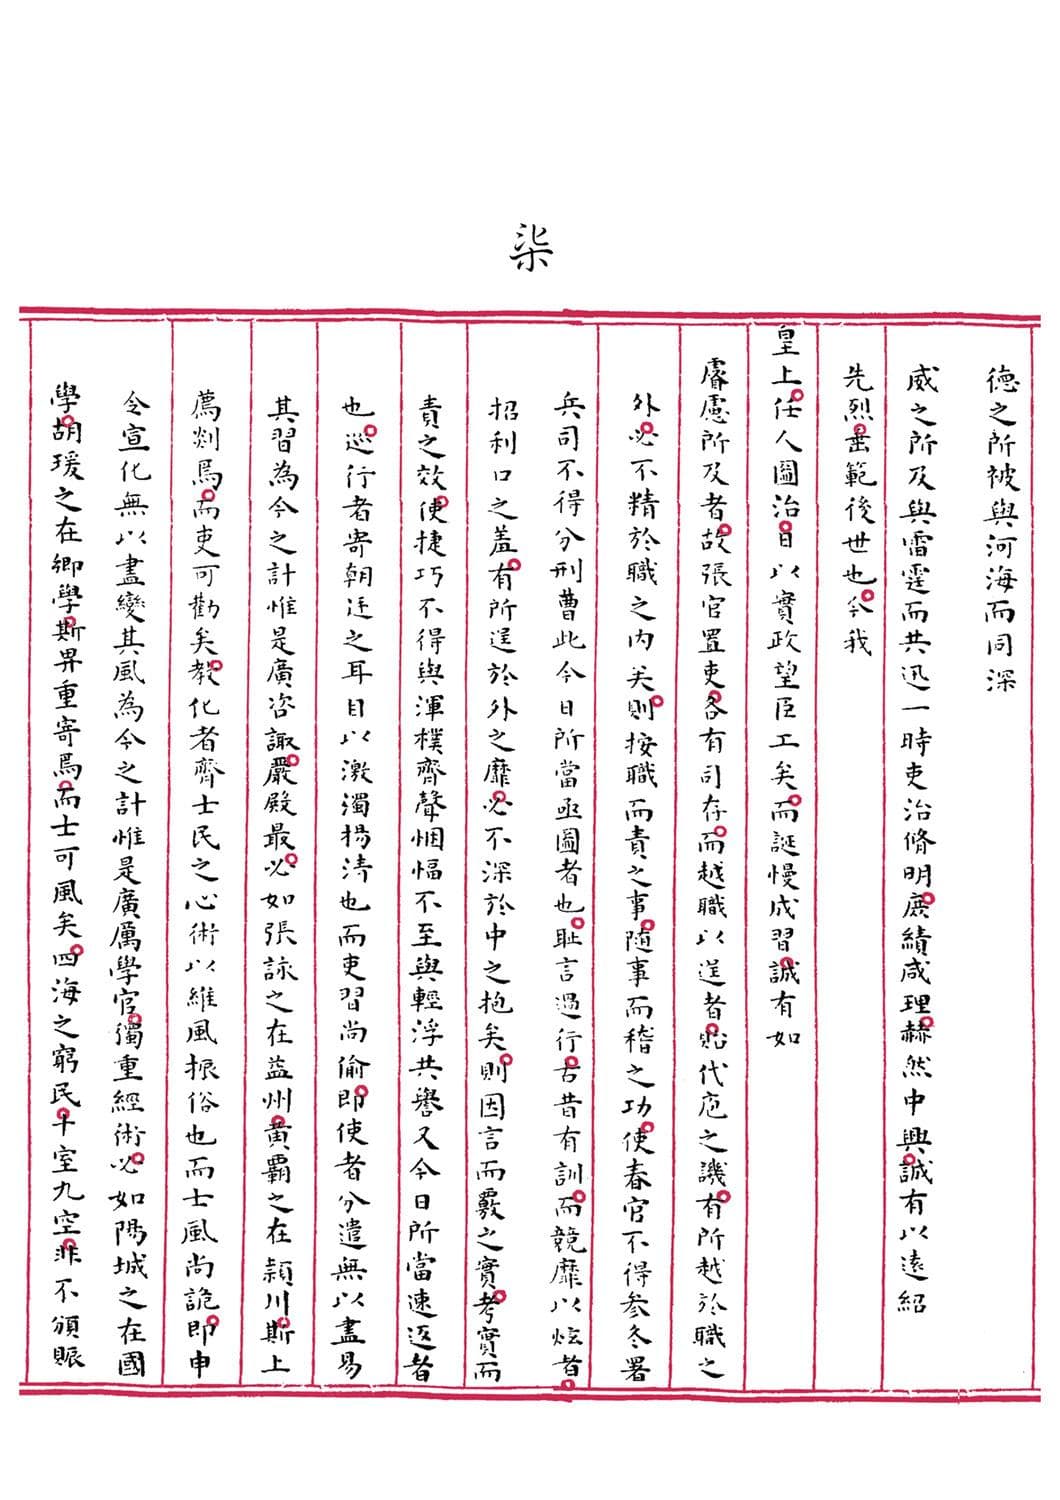 柒
德之所被與河海而同深
威之所及與雷霆而共迅一時吏治脩明庶績咸理赫然中興誠有以遠紹
先烈垂範後世也今我
皇上任人圖治日以實政望臣工矣而誕慢成習誠有如
睿慮所及者故張官置吏各有司存而越職以逞者貽代庖之譏有所越於職之
外必不精於職之內矣則按職而責之事隨事而稽之功使春官不得參冬署
兵司不得分刑曹此今日所當亟圖者也恥言過行古昔有訓而競靡以炫者
招利口之羞有所逞於外之靡必不深於中之抱矣則因言而覈之實考實而
責之效使捷巧不得與渾樸齊聲悃愊不至與輕浮共譽又今日所當速返者
也巡行者寄朝廷之耳目以激濁揚清也而吏習尚偷即使者分遣無以盡易
其習為今之計惟是廣咨諏嚴殿最必如張詠之在益州黃霸之在潁川斯上
薦剡焉而吏可勸矣教化者齊士民之心術以維風振俗也而士風尚詭即申
令宣化無以盡變其風為今之計惟是廣厲學官獨重經術必如陽城之在國
學胡瑗之在鄉學斯畀重寄焉而士可風矣四海之窮民十室九空非不頒賑